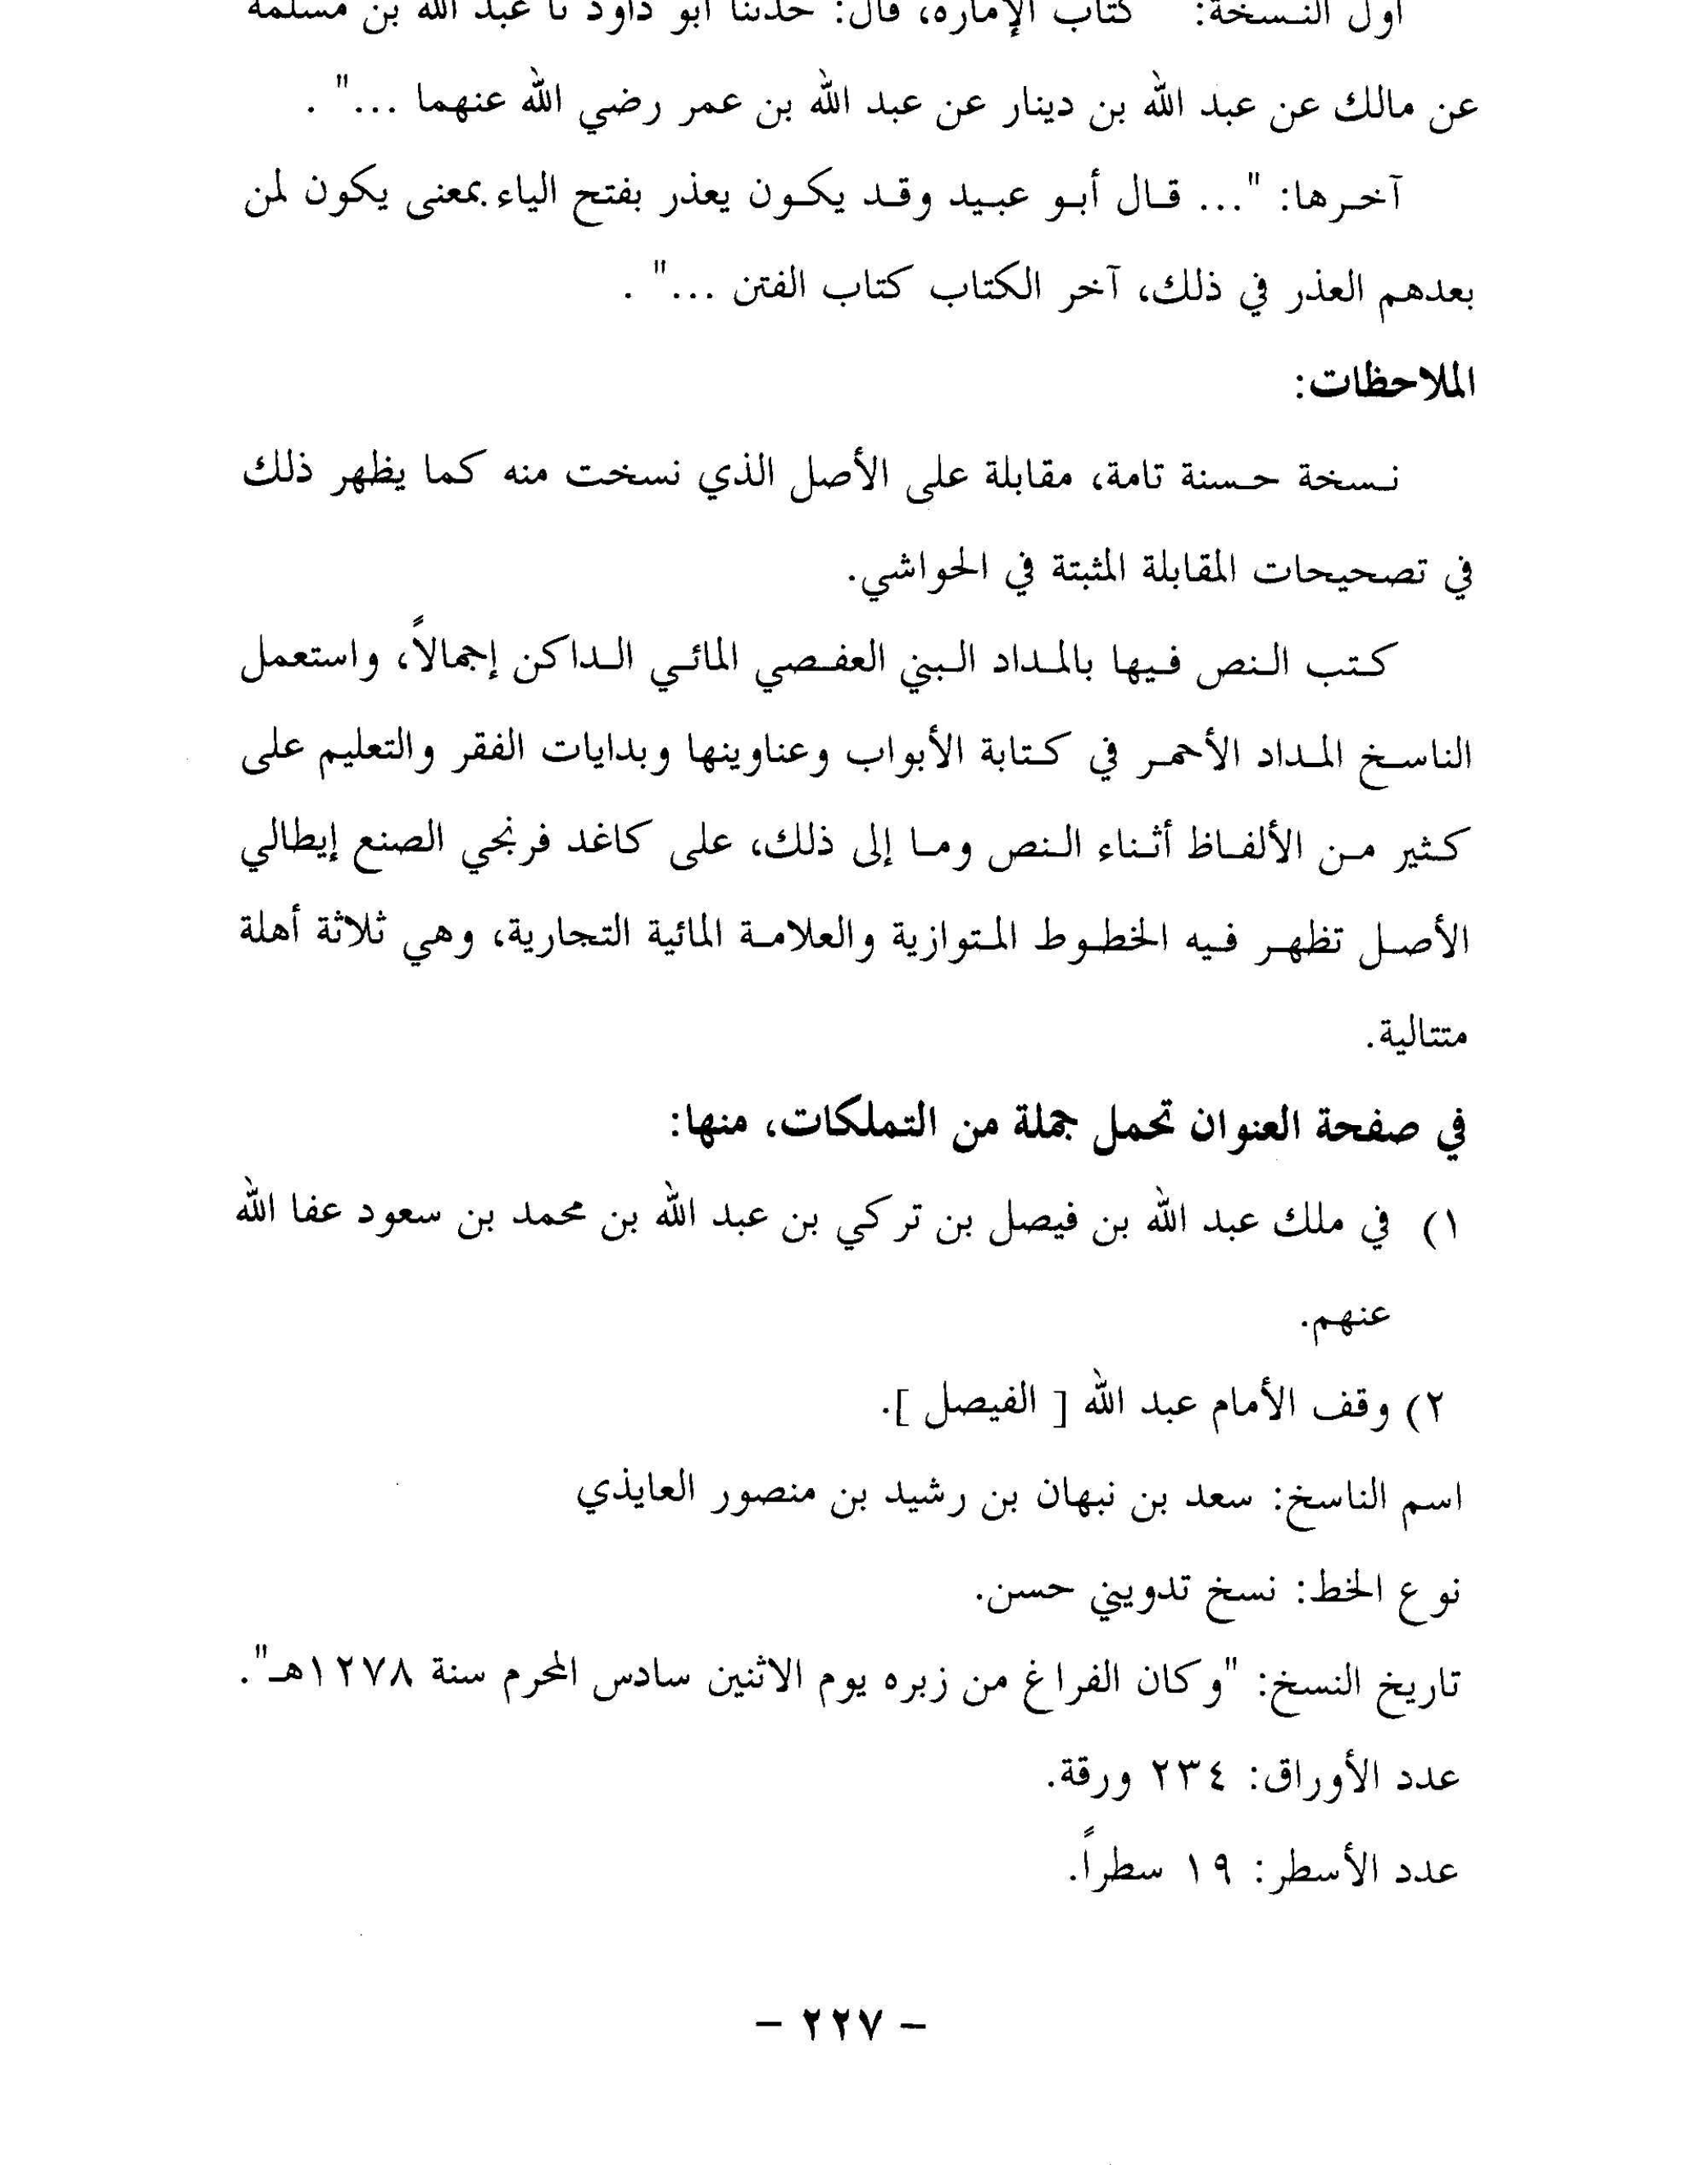 أول النسخة: كتاب الإمارة، قال: حدثنا أبو داود نا عبد الله بن مسلمة
عن مالك عن عبد الله بن دينار عن عبد الله بن عمر رضي الله عنهما ...".
آخرها: "... قال أبو عبيد وقد يكون يعذر بفتح الياء بمعنى يكون لمن
بعدهم العذر في ذلك، آخر الكتاب كتاب الفتن ...".
الملاحظات:
نسخة حسنة تامة، مقابلة على الأصل الذي نسخت منه كما يظهر ذلك
في تصحيحات المقابلة المثبتة في الحواشي.
كتب النص فيها بالمداد البني العفصي المائي الداكن إجمالاً، واستعمل
الناسخ المداد الأحمر في كتابة الأبواب وعناوينها وبدايات الفقر والتعليم على
كثير من الألفاظ أثناء النص وما إلى ذلك، على كاغد فرنجي الصنع إيطالي
الأصل تظهر فيه الخطوط المتوازية والعلامة المائية التجارية، وهي ثلاثة أهلة
متتالية.
في صفحة العنوان تحمل جملة من التملكات، منها:
١) في ملك عبد الله بن فيصل بن تركي بن عبد الله بن محمد بن سعود عفا الله
عنهم.
٢) وقف الأمام عبد الله [ الفيصل ].
اسم الناسخ: سعد بن نبهان بن رشيد بن منصور العايذي
نوع الخط: نسخ تدويني حسن.
تاريخ النسخ: "وكان الفراغ من زبره يوم الاثنين سادس المحرم سنة ١٢٧٨هـ".
عدد الأوراق: ٢٣٤ ورقة.
عدد الأسطر: ١٩ سطراً.
- ٢٢٧ -